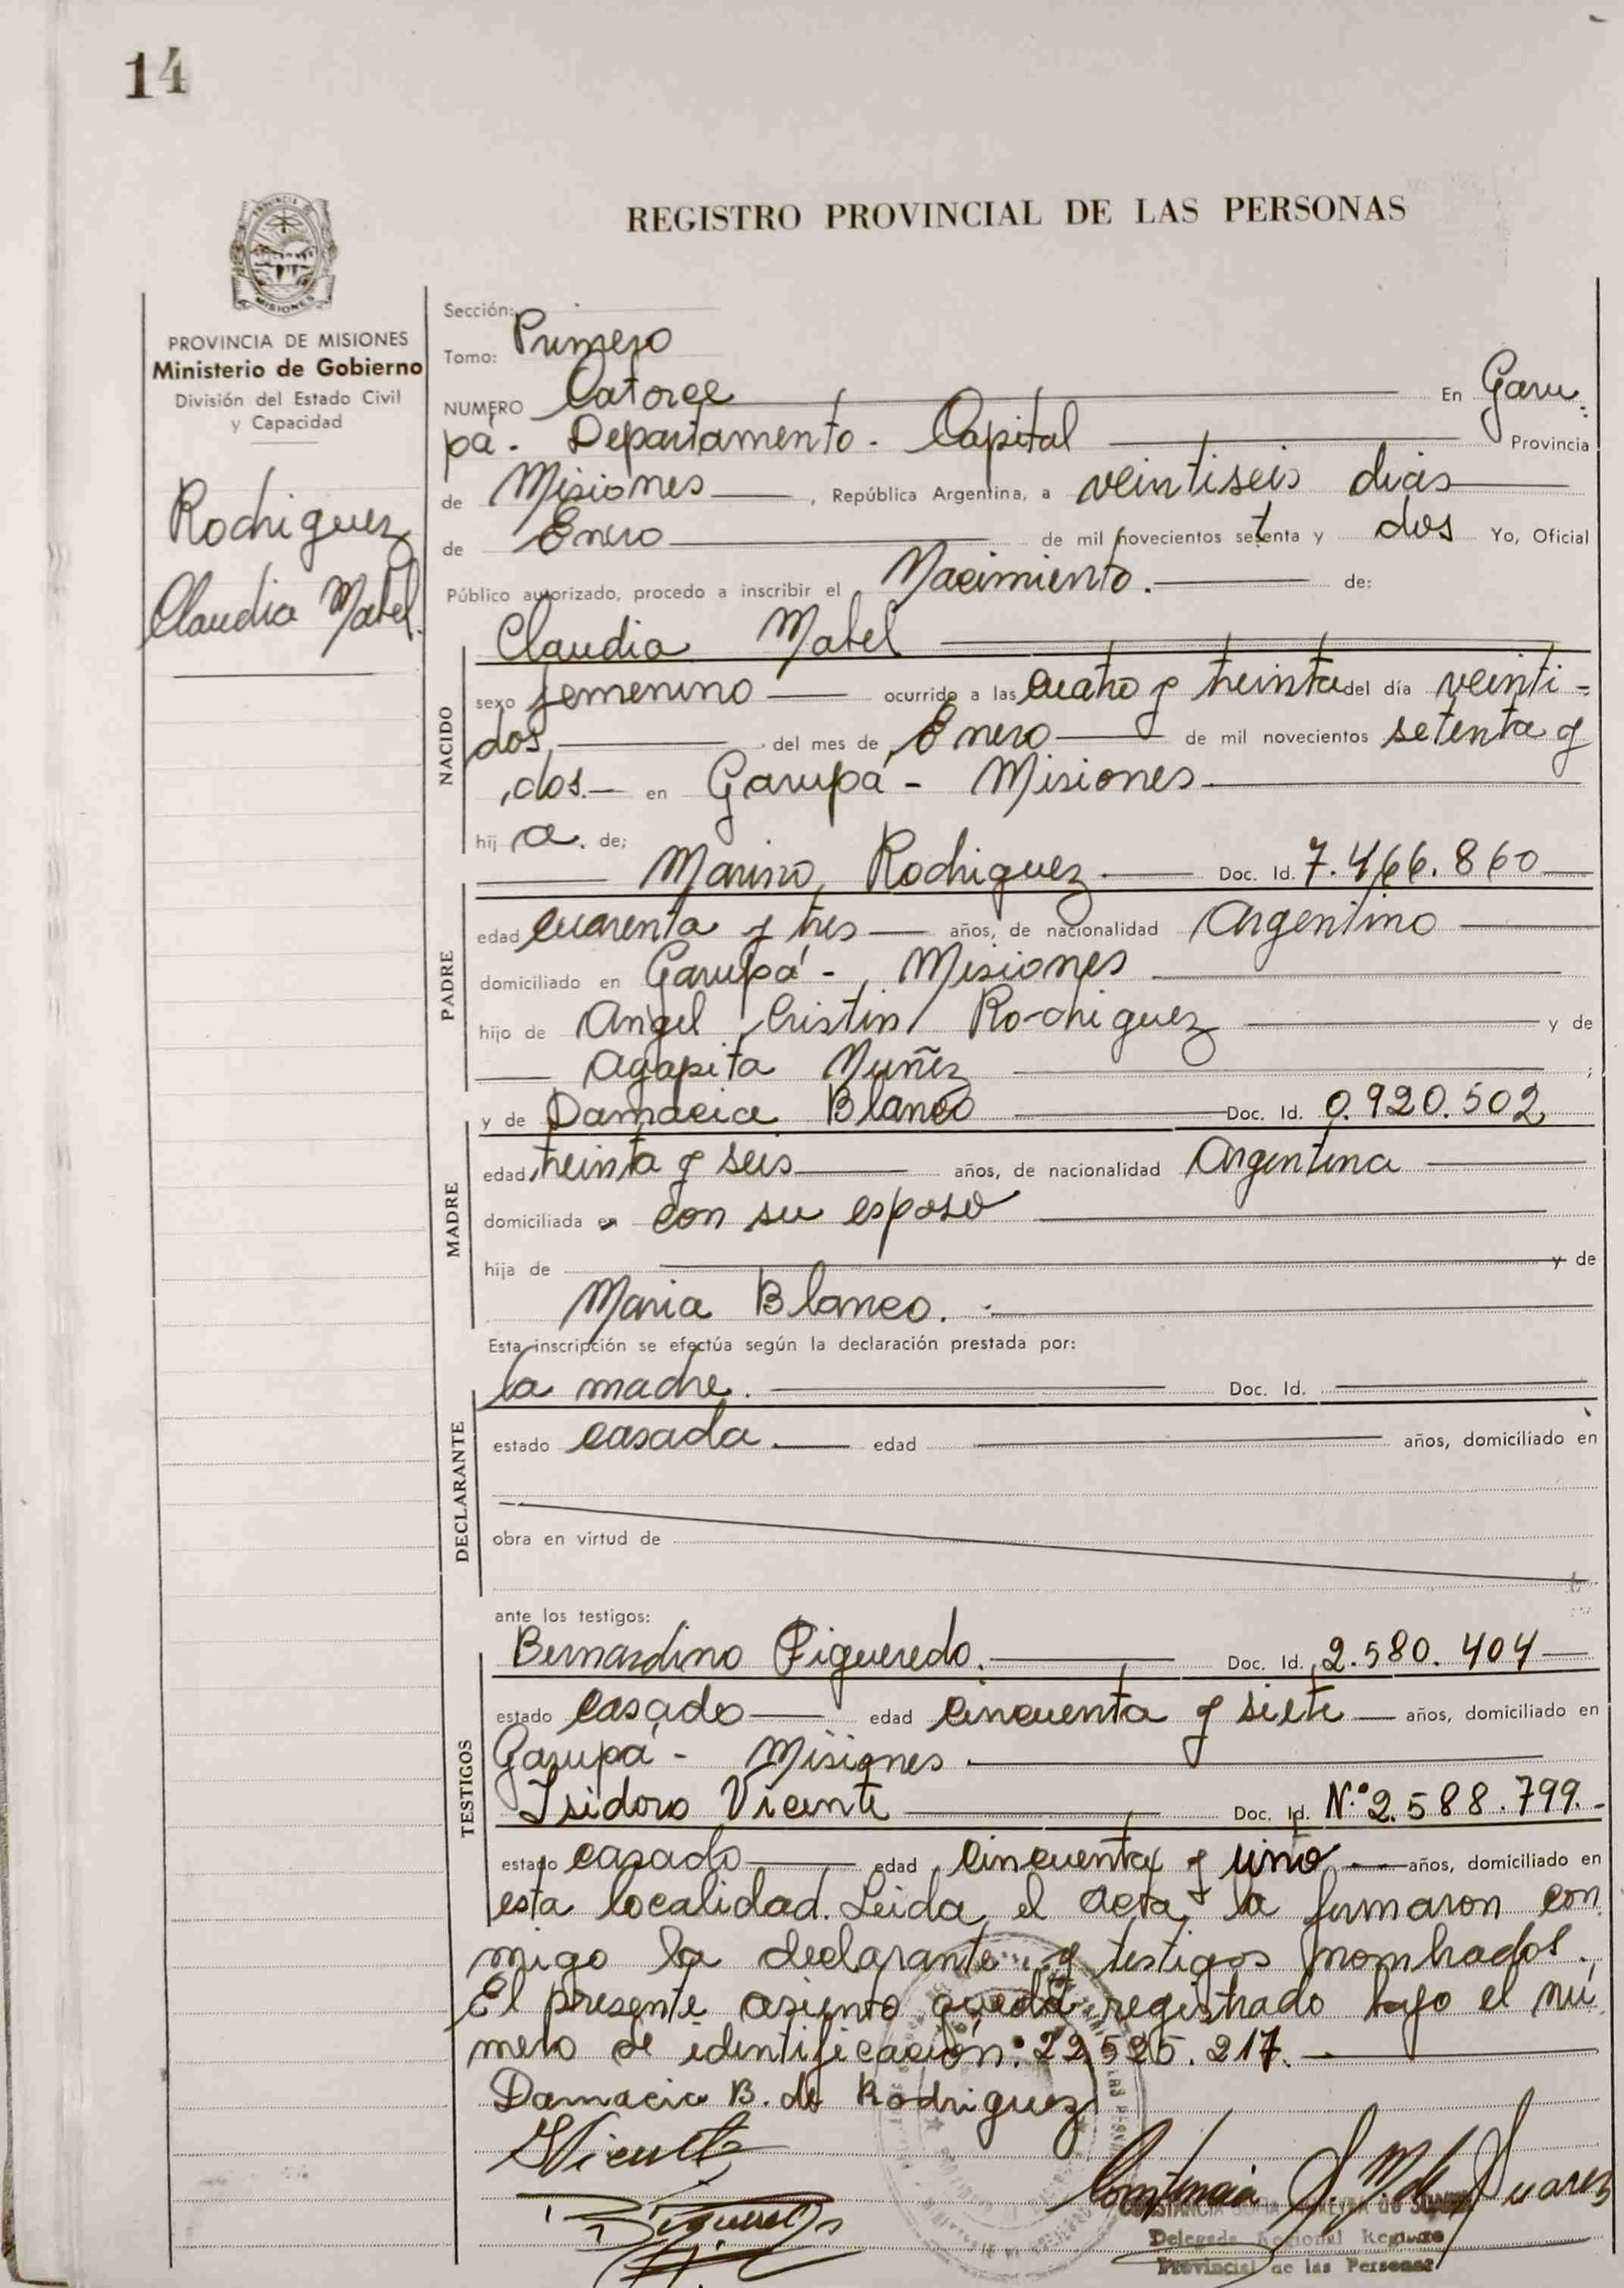 14
REGISTRO PROVINCIAL DE LAS PERSONAS
MISIONES
PROVINCIA DE MISIONES
Ministerio de Gobierno
División del Estado Civil
y Capacidad
Rodriguez
Claudia Mabel.
Sección:
Tomo: Primero
NUMERO Catorce En Garu-
pá - Departamento - Capital Provincia
de Misiones, República Argentina, a veintiseis dias
de Enero de mil novecientos setenta y dos Yo, Oficial
Público autorizado, procedo a inscribir el Nacimiento. de:
NACIDO
Claudia Mabel
sexo femenino ocurrido a las cuatro y treinta del día veinti-
dos, del mes de Enero de mil novecientos setenta y
dos.- en Garupá - Misiones
hij a. de:
PADRE
Marino Rodriguez Doc. Id. 7.466.860
edad cuarenta y tres años, de nacionalidad Argentino
domiciliado en Garupá - Misiones
hijo de Angel Cristin Rodriguez y de
Agapita Nuñez ;
MADRE
y de Damacia Blanco Doc. Id. 0.920.502
edad treinta y seis años, de nacionalidad Argentina
domiciliada en con su esposo
hija de y de
Maria Blanco.
Esta inscripción se efectúa según la declaración prestada por:
DECLARANTE
la madre. Doc. Id.
estado casada. edad años, domiciliado en
obra en virtud de
ante los testigos:
TESTIGOS
Bernardino Figueredo. Doc. Id. 2.580.404
estado casado edad cincuenta y siete años, domiciliado en
Garupá - Misiones.
Isidoro Vicente Doc. Id. N.º 2.588.799.-
estado casado edad cincuenta y uno años, domiciliado en
esta localidad. Leida el acta la firmaron con
migo la declarante y testigos nombrados.
El presente asiento queda registrado bajo el nú
mero de identificación: 22.525.217.
Damacia B. de Rodriguez
IVicente
BFigueredo
Constancia S. M. de Suarez
Delegada Regional Registro
Provincial de las Personas